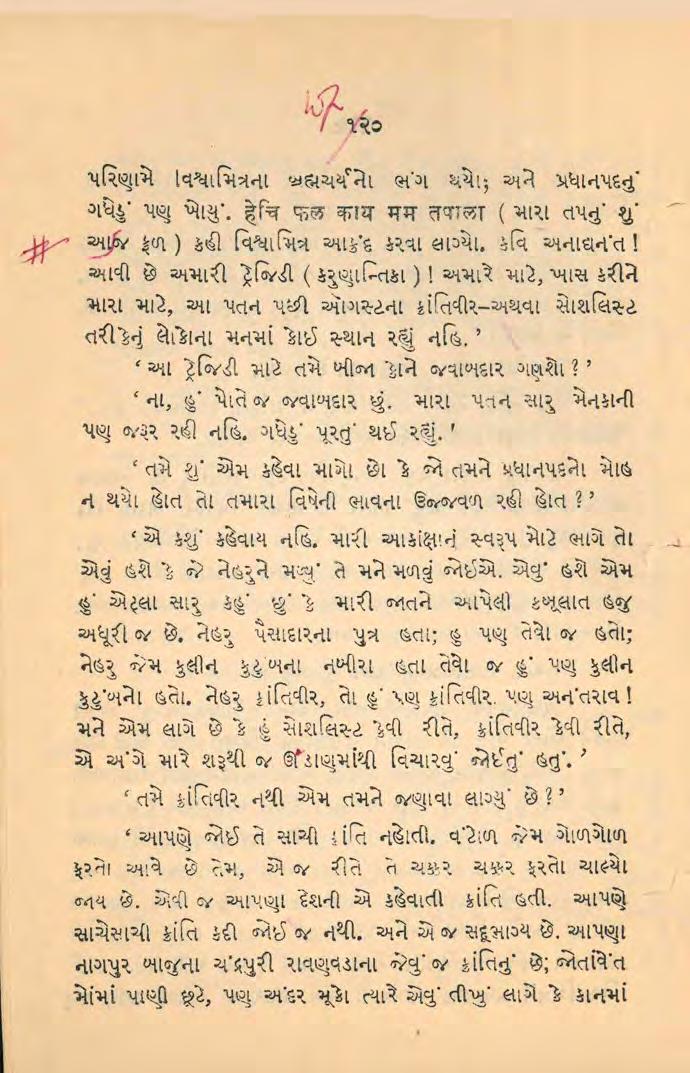 ૧૨૦
પરિણામે વિશ્વામિત્રના બ્રહ્મચર્યનો ભંગ થયો; અને પ્રધાનપદનું
ગધેડું પણ ખોયું. हेचि फल काय मम तपाला ( મારા તપનું શું
આજ ફળ ) કહી વિશ્વામિત્ર આક્રંદ કરવા લાગ્યો. કવિ અનાદ્યનંત !
આવી છે અમારી ટ્રેજિડી ( કરુણાન્તિકા ) ! અમારે માટે, ખાસ કરીને
મારા માટે, આ પતન પછી ઑગસ્ટના ક્રાંતિવીર–અથવા સોશલિસ્ટ
તરીકેનું લોકોના મનમાં કોઈ સ્થાન રહ્યું નહિ. ’
‘ આ ટ્રેજિડી માટે તમે બીજા કોને જવાબદાર ગણશો ? ’
‘ ના, હું પોતે જ જવાબદાર છું. મારા પતન સારુ મેનકાની
પણ જરૂર રહી નહિ. ગધેડું પૂરતું થઈ રહ્યું. '
‘ તમે શું એમ કહેવા માગો છો કે જો તમને પ્રધાનપદનો મોહ
ન થયો હોત તો તમારા વિષેની ભાવના ઉજ્જવળ રહી હોત ? ’
‘ એ કશું કહેવાય નહિ. મારી આકાંક્ષાનું સ્વરૂપ મોટે ભાગે તો
એવું હશે કે જે નેહરુને મળ્યું તે મને મળવું જોઈએ. એવું હશે એમ
હું એટલા સારુ કહું છું કે મારી જાતને આપેલી કબૂલાત હજુ
અધૂરી જ છે. નેહરુ પૈસાદારના પુત્ર હતા; હુ પણ તેવો જ હતો;
નેહરુ જેમ કુલીન કુટુંબના નબીરા હતા તેવો જ હું પણ કુલીન
કુટુંબનો હતો. નેહરુ ક્રાંતિવીર, તો હું પણ ક્રાંતિવીર. પણ અનંતરાવ !
મને એમ લાગે છે કે હું સોશલિસ્ટ કેવી રીતે, ક્રાંતિવીર કેવી રીતે,
એ અંગે મારે શરૂથી જ ઊંડાણમાંથી વિચારવું જોઈતું હતું. ’
‘ તમે ક્રાંતિવીર નથી એમ તમને જણાવા લાગ્યું છે ? ’
‘ આપણે જોઈ તે સાચી ક્રાંતિ નહોતી. વંટોળ જેમ ગોળગોળ
ફરતો આવે છે તેમ, એ જ રીતે તે ચક્કર ચક્કર ફરતો ચાલ્યો
જાય છે. એવી જ આપણા દેશની એ કહેવાતી ક્રાંતિ હતી. આપણે
સાચેસાચી ક્રાંતિ કદી જોઈ જ નથી. અને એ જ સદ્ભાગ્ય છે. આપણા
નાગપુર બાજુના ચંદ્રપુરી રાવણવડાના જેવું જ ક્રાંતિનું છે; જોતાંવેંત
મોંમાં પાણી છૂટે, પણ અંદર મૂકો ત્યારે એવું તીખું લાગે કે કાનમાં